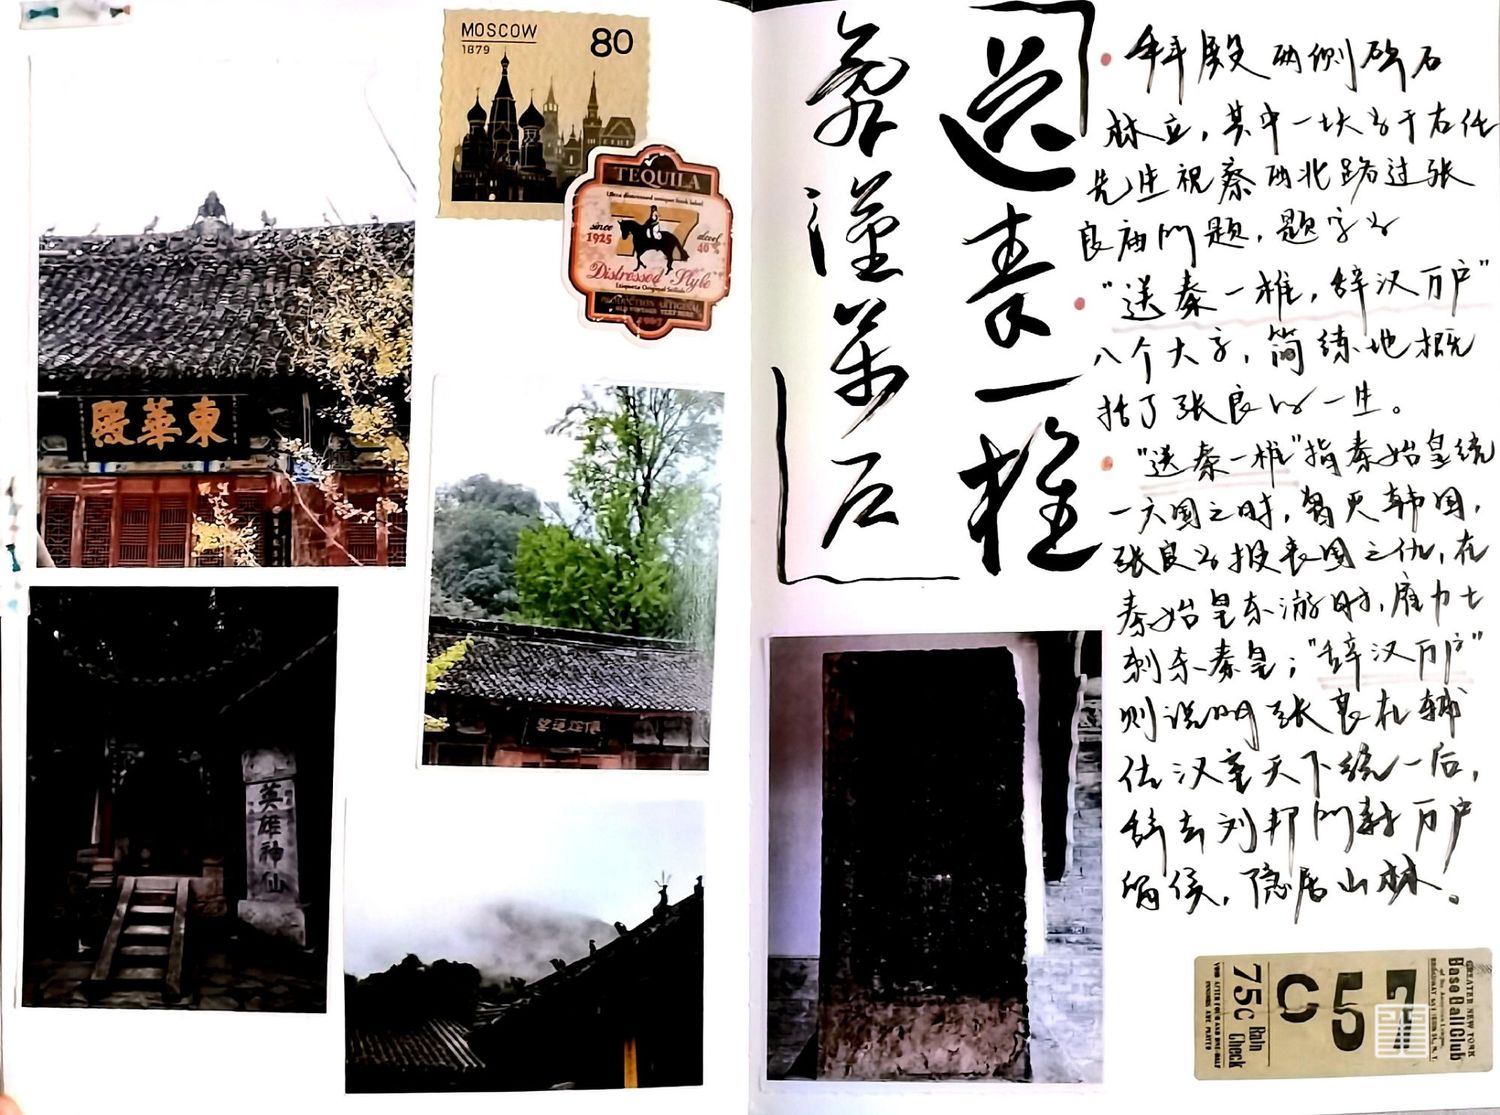 MOSCOW
1879
80
TEQUILA
since
1925
alcool
40%
Distressed Style
東華殿
英雄神仙
送秦一椎
辞漢萬户
拜殿两侧碑石
林立，其中一块为于右任
先生视察西北路过张
良庙时题，题字为
“送秦一椎，辞汉万户”
八个大字，简练地概
括了张良的一生。
“送秦一椎”指秦始皇统
一六国之时，曾灭韩国，
张良为报韩国之仇，在
秦始皇东游时，雇力士
刺杀秦皇；“辞汉万户”
则说明张良在辅
佐汉室天下统一后，
辞去刘邦所封万户
留侯，隐居山林。
GREATER NEW YORK
Base Ball Club
C57
75c Rain Check